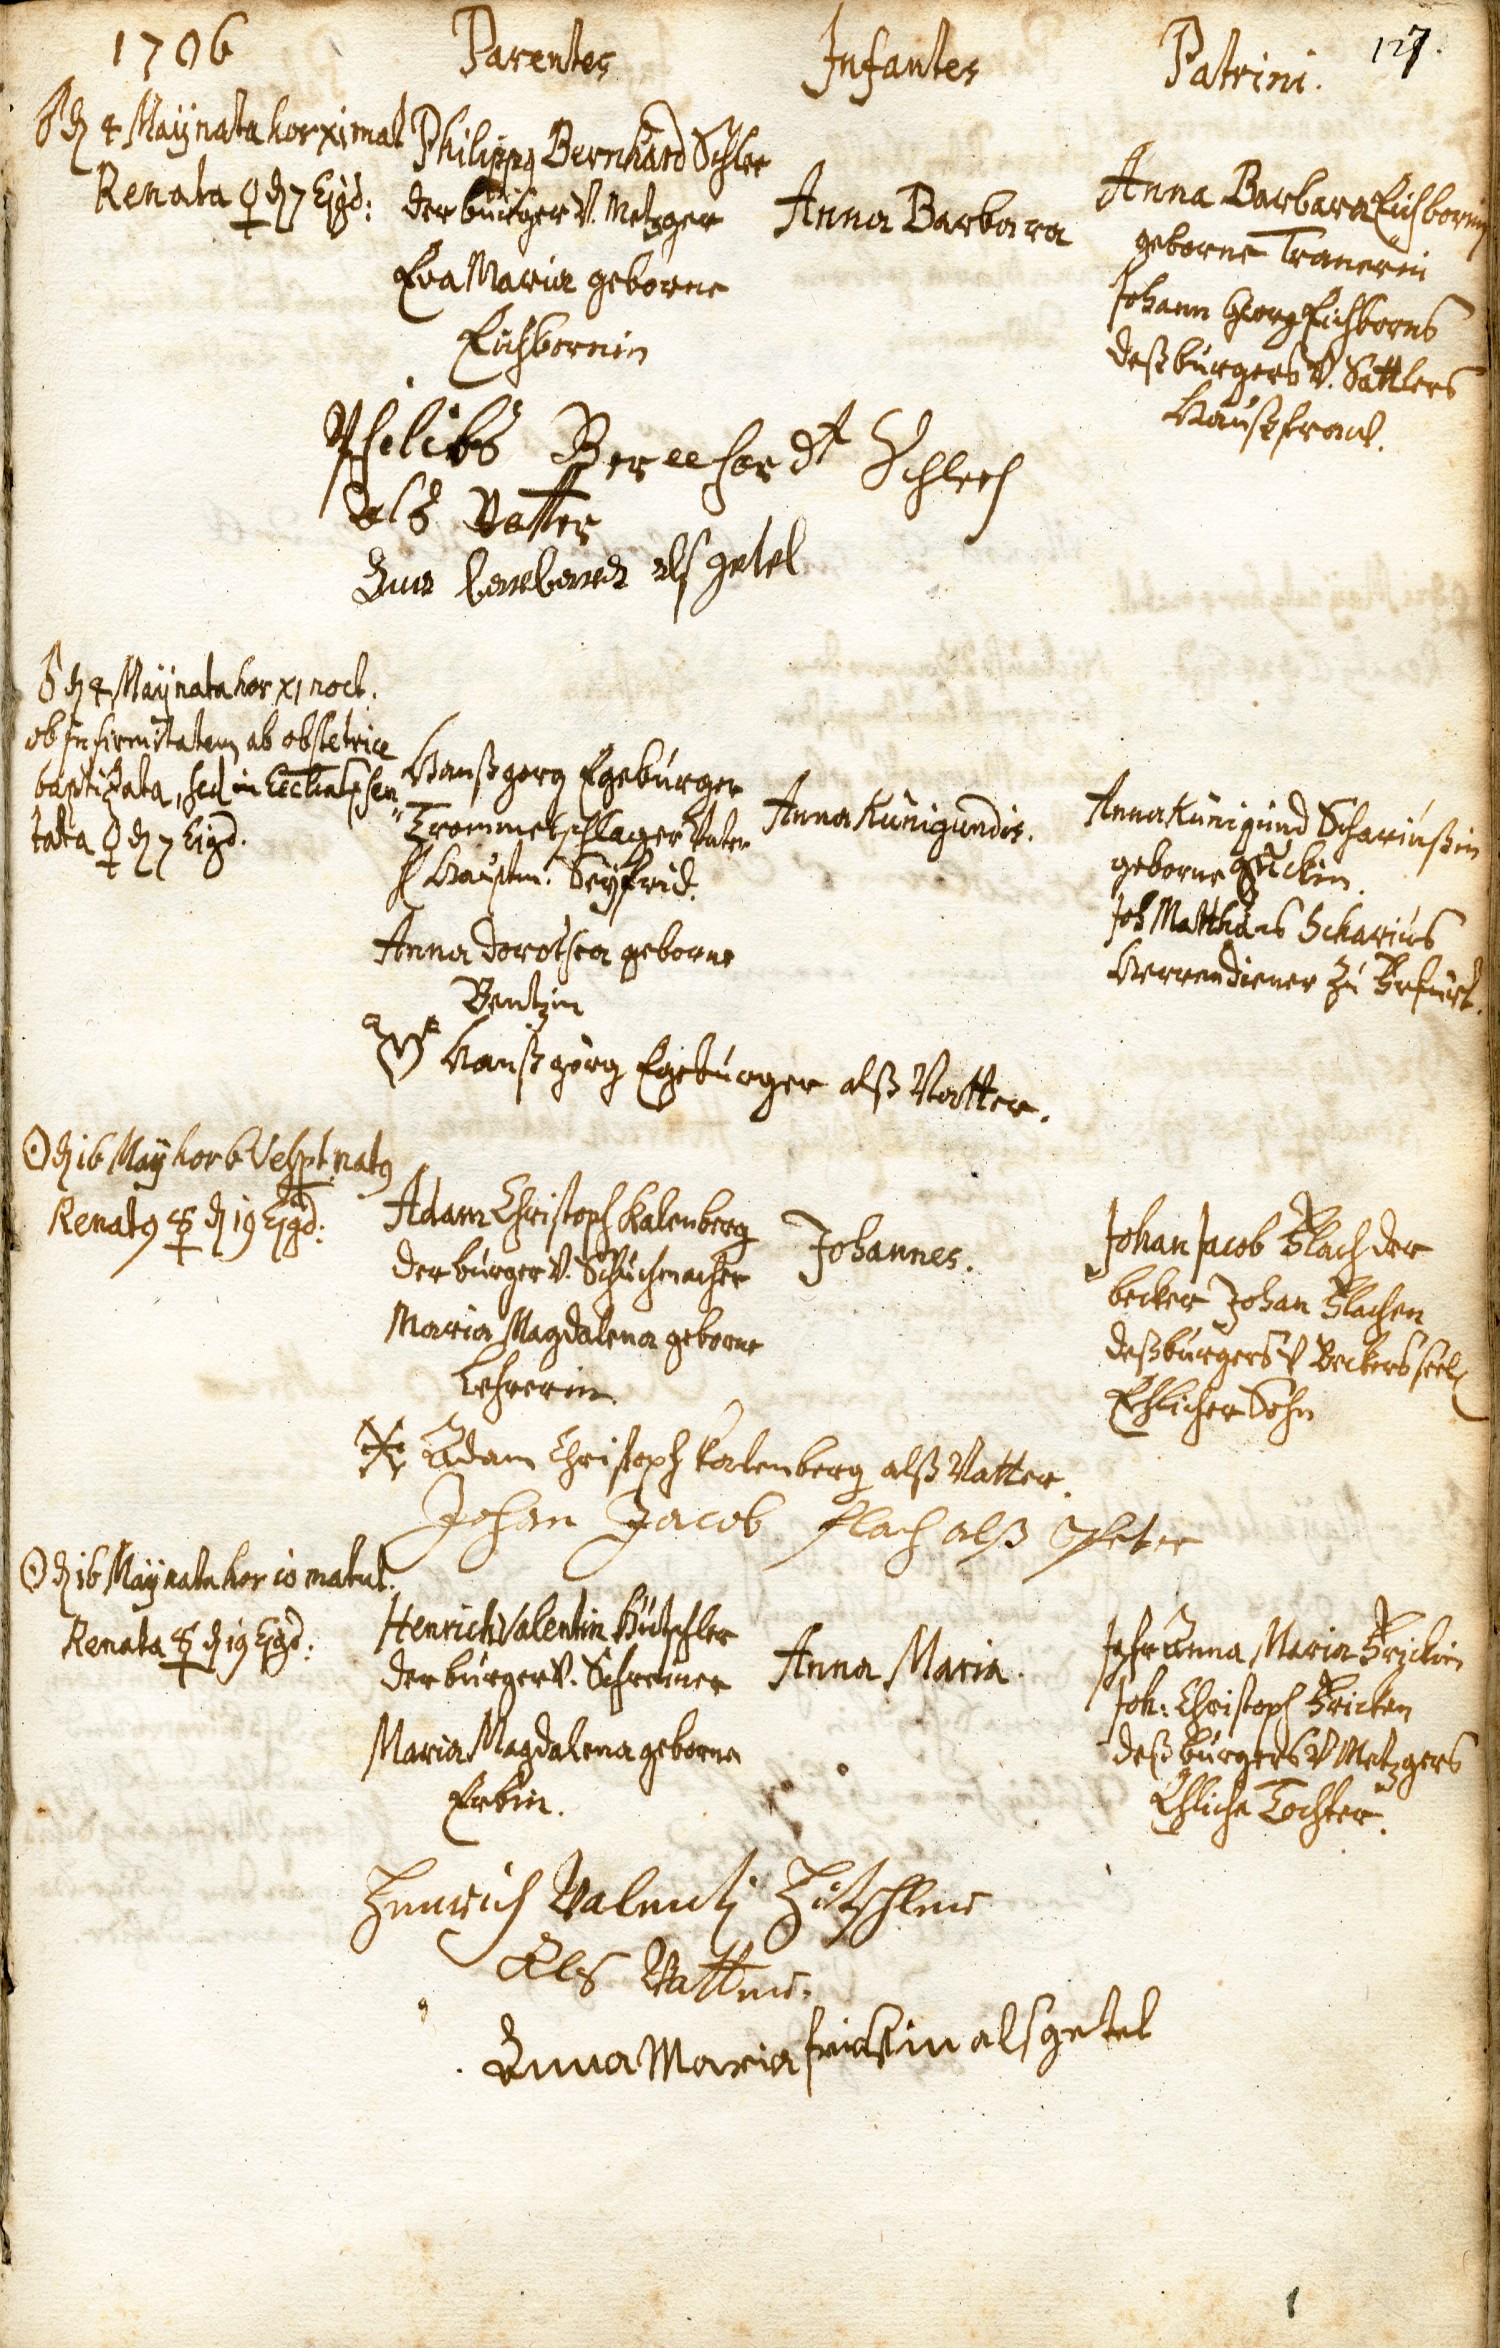 1706 Parentes Infantes Patrini. 127.
♂ d 4 Maÿ nata hor xi mat
Renata ♀ d 7 Ejsd:
Philippq Bernhard Schlee
der burger V. Metzger
Eva Maria geborne
Eichbornin
Anna Barbara
Anna Barbara Eichbornin
geborne Tranerin
Johann Georg Eichborns
deß burgers V. Sattlers
Haußfraw.
Philibs Bernhardt Schleeh
Als Vatter
Ana barbara als getel
♂ d 4 Maÿ nata hor xi noct.
ob infirmitatem ab obstetrice
baptizata, sed in Eccl. repræsen
tata ♀ d 7 Eigd.
Hanß georg Egeburger
Trommelschlager unter
H Hauptm. Seÿfrid.
Anna Dorothea geborne
Bentzin
Anna Kunigundis.
Anna Kunigund Schariußin
geborne
Joh Matthæus Scharius
Herrendiener zu Erfurt.
Hanß görg Egeburger alß Vatter.
☉ d 16 Maÿ hor 6 Vespt natq
Renatq ☿ d 19 Ejgd:
Adam Christoph Kalenberg
der burger V. Schuchmacher
Maria Magdalena geborne
Lehrerin.
Johannes.
Johan Jacob Flach der
becker Johan Flachen
deß burgers V Beckers seel
Ehlicher Sohn
Adam Christoph Kalenberg alß Vatter.
Johan Jacob flach alß Pfeter
☉ d 16 Maÿ nata hor 10 matut.
Renata ☿ d 19 Ejgd:
Henrich Valentin Hütschler
der burger V. Schreiner
Maria Magdalena geborne
Erbin.
Anna Maria.
Jgfr Anna Maria Frickin
Joh: Christoph Fricken
deß burgers V Metzgers
Ehliche Tochter.
Henrich Valentj Hitschler
Als Vatter.
Anna Maria frickin als getel